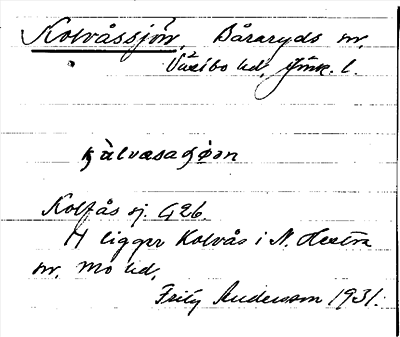 Kolvåssjön, Båraryds sn.
Västbo hd, Jönk. l.
kålvasaʃøɷn
Kolfås sj. G26.
H ligger Kolvås i N. Hestra
sn. Mo hd,
Fritz Andersson 1931.